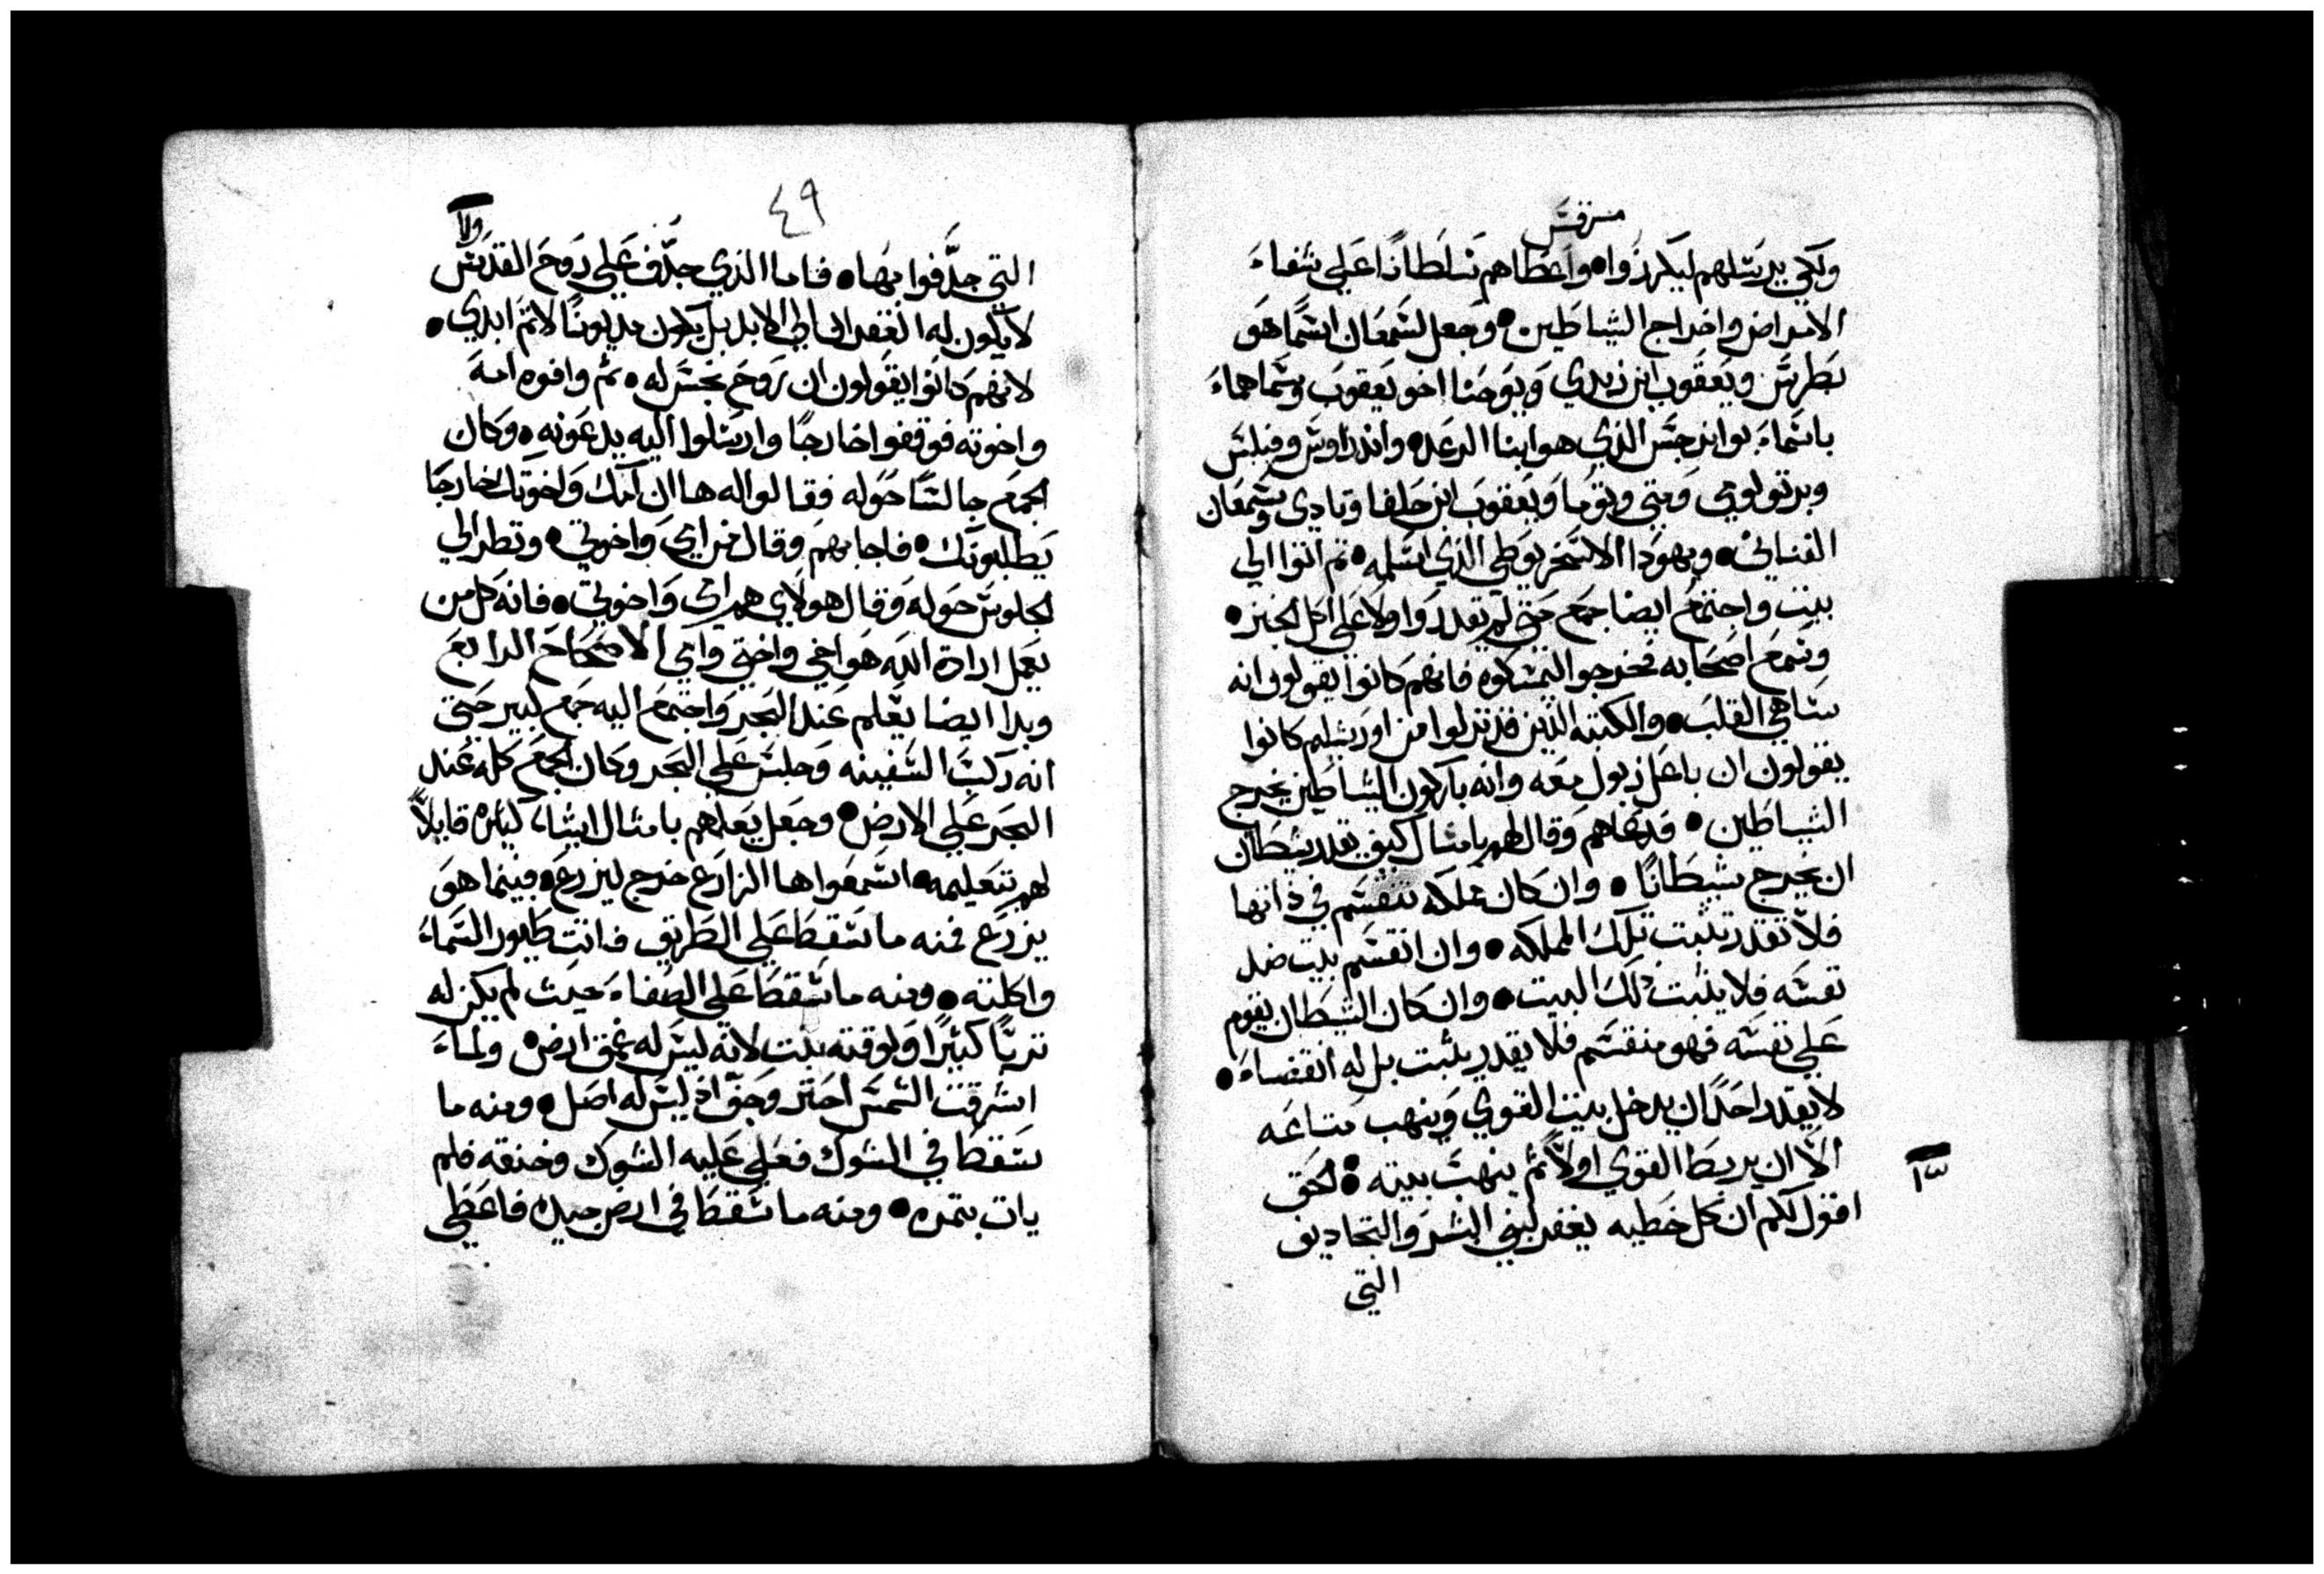 مرقس
ولكي يرسلهم ليكرزوا • واعطاهم سلطانًا علي شفاء
الامراض واخراج الشياطين • وجعل لشمعان اسمًا هو
بطرس ويعقوب ابن زبدي ويوحنا اخو يعقوب وسماهما
باسماء بوانرجس الذي هو ابنا الرعد • واندراوس وفيلبس
وبرتولومي ومتي وتوما ويعقوب ابن حلفا وتادي وشمعان
القناني • ويهودا الاسخريوطي الذي اسلمه • ثم اتوا الي
بيت واجتمع ايضا جمع حتي لم يقدروا ولا علي اكل الخبز •
وسمع اصحابه فخرجوا ليمسكوه فانهم كانوا يقولون انه
ساهي القلب • والكتبه الذين قد نزلوا من اورشليم كانوا
يقولون ان باعلزبول معه وانه باركون الشياطين يخرج
الشياطين • فدعاهم وقال لهم بامثال كيف يقدر شيطان
ان يخرج شيطانًا • وان كان مملكه تنقسم في ذاتها
فلا تقدر تثبت تلك المملكه • وان انقسم بيت ضد
نفسه فلا يثبت ذلك البيت • وان كان الشيطان يقوم
علي نفسه فهو منقسم فلا يقدر يثبت بل له انقضاء •
لا يقدر احدًا ان يدخل بيت القوي وينهب متاعه
الا ان يربط القوي اولاً ثم ينهب بيته • الحق
اقول لكم ان كل خطيه يغفر لبني البشر والتجاديف
التي
٤٩
التي جدفوا بها • فاما الذي جدف علي روح القدس
لا يكون له الغفران الي الابد بل يكون مديونًا لاثم ابدي •
لانهم كانوا يقولون ان روح نجس له • ثم وافوه امه
واخوته فوقفوا خارجًا وارسلوا اليه يدعونه • وكان
الجمع جالسًا حوله فقالوا له ها ان امك واخوتك خارجًا
يطلبونك • فاجابهم وقال من امي واخوتي • ونظر الي
الجلوس حوله وقال هولاي هم امي واخوتي • فانه كل من
يعمل ارادة الله هو اخي واختي وامي الاصحاح الرابع
وبدا ايضا يعلم عند البحر واجتمع اليه جمع كبير حتي
انه ركب السفينه وجلس علي البحر وكان الجمع كله عند
البحر علي الارض • وجعل يعلمهم بامثال اشياء كثيره قايلاً
لهم بتعليمه • اسمعوا ها الزارع خرج ليزرع • فبينما هو
يزرع فمنه ما سقط علي الطريق فاتت طيور السماء
واكلته • ومنه ما سقط علي الصفاء حيث لم يكن له
تربًا كثيرًا ولوقته نبت لانه ليس له عمق ارض • ولما
اشرقت الشمس احتر وجف اذ ليس له اصل • ومنه ما
سقط في الشوك فعلي عليه الشوك وخنقه فلم
يات بثمره • ومنه ما سقط في ارض جيده فاعطي